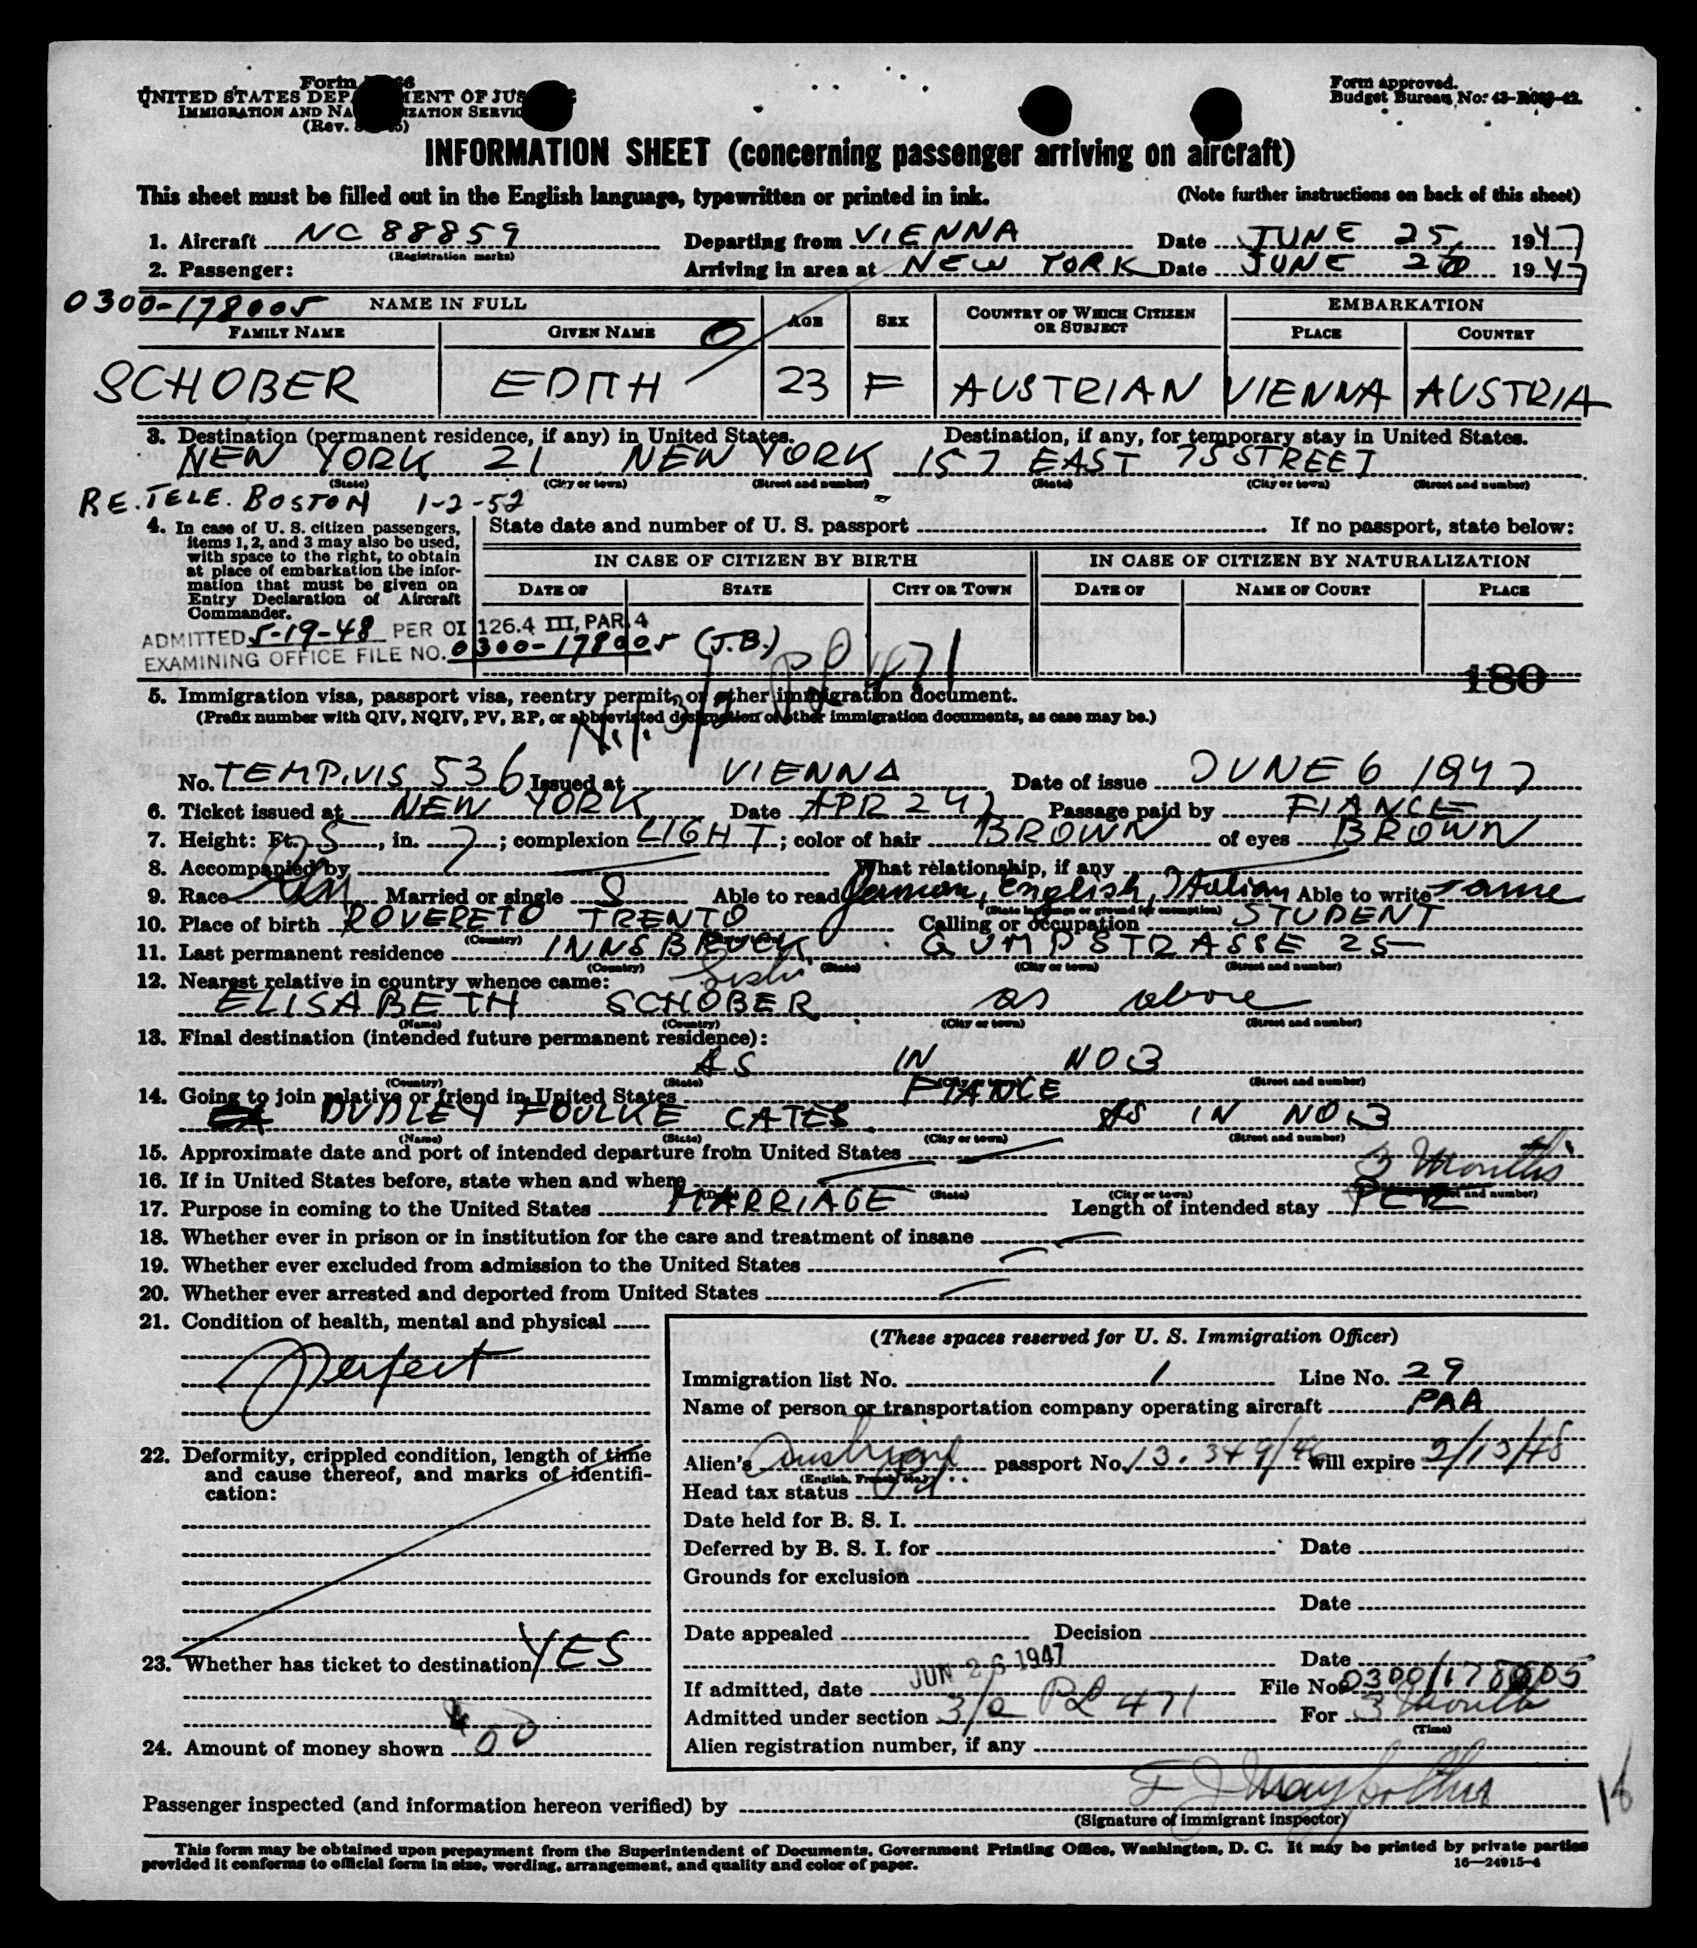 Form
UNITED STATES DEPARTMENT OF JUSTICE
IMMIGRATION AND NATURALIZATION SERVICE
(Rev.
Form approved.
Budget Bureau No.
INFORMATION SHEET (concerning passenger arriving on aircraft)
This sheet must be filled out in the English language, typewritten or printed in ink. (Note further instructions on back of this sheet)
1. Aircraft NC 88859 Departing from VIENNA Date JUNE 25, 1947
(Registration marks)
2. Passenger: Arriving in area at NEW YORK Date JUNE 1947
0300-178005 NAME IN FULL AGE SEX COUNTRY OF WHICH CITIZEN OR SUBJECT EMBARKATION
FAMILY NAME GIVEN NAME PLACE COUNTRY
SCHOBER EDITH 23 F AUSTRIAN VIENNA AUSTRIA
3. Destination (permanent residence, if any) in United States. Destination, if any, for temporary stay in United States.
NEW YORK 21 NEW YORK 157 EAST 75 STREET
(State) (City or town) (Street and number) (State) (City or town) (Street and number)
RE. TELE. BOSTON 1-2-52
4. In case of U. S. citizen passengers, items 1, 2, and 3 may also be used, with space to the right, to obtain at place of embarkation the information that must be given on Entry Declaration of Aircraft Commander.
State date and number of U. S. passport If no passport, state below:
IN CASE OF CITIZEN BY BIRTH IN CASE OF CITIZEN BY NATURALIZATION
DATE OF STATE CITY OR TOWN DATE OF NAME OF COURT PLACE
ADMITTED 5-19-48 PER OI 126.4 III, PAR. 4
EXAMINING OFFICE FILE NO. 0300-178005 (J.B.)
180
5. Immigration visa, passport visa, reentry permit, or other immigration document.
(Prefix number with QIV, NQIV, PV, RP, or abbreviated designation of other immigration documents, as case may be.)
No. TEMP. VIS 536 Issued at VIENNA Date of issue JUNE 6 1947
6. Ticket issued at NEW YORK Date APR 24 Passage paid by FIANCE
7. Height: Ft. 5, in. 7; complexion LIGHT; color of hair BROWN of eyes BROWN
8. Accompanied by What relationship, if any
9. Race Married or single S Able to read German, English, Italian Able to write same
(State language or ground for exemption)
10. Place of birth ROVERETO TRENTO Calling or occupation STUDENT
(Country)
11. Last permanent residence INNSBRUCK GUMPSTRASSE 25
(Country) (State) (City or town) (Street and number)
12. Nearest relative in country whence came:
ELISABETH SCHOBER as above
(Name) (Country) (City or town) (Street and number)
13. Final destination (intended future permanent residence):
AS IN NO 3
(Country) (State) (City or town) (Street and number)
14. Going to join relative or friend in United States FIANCE
DUDLEY FOULKE CATES. AS IN NO. 3
(Name) (State) (City or town) (Street and number)
15. Approximate date and port of intended departure from United States
16. If in United States before, state when and where
3 months
(State) (City or town) (Street and number)
17. Purpose in coming to the United States MARRIAGE Length of intended stay PER
18. Whether ever in prison or in institution for the care and treatment of insane
19. Whether ever excluded from admission to the United States
20. Whether ever arrested and deported from United States
21. Condition of health, mental and physical
perfect
22. Deformity, crippled condition, length of time and cause thereof, and marks of identification:
23. Whether has ticket to destination YES
24. Amount of money shown
(These spaces reserved for U. S. Immigration Officer)
Immigration list No. 1 Line No. 29
Name of person or transportation company operating aircraft PAA
Alien's Austrian passport No. 13.349/46 will expire 2/13/48
(English, French, etc.)
Head tax status
Date held for B. S. I.
Deferred by B. S. I. for Date
Grounds for exclusion
Date
Date appealed Decision
Date
If admitted, date JUN 26 1947 File No. 0300/178005
Admitted under section 3/2 PL 471 For 3 months
(Time)
Alien registration number, if any
Passenger inspected (and information hereon verified) by
(Signature of immigrant inspector)
16
This form may be obtained upon prepayment from the Superintendent of Documents, Government Printing Office, Washington, D. C. It may be printed by private parties
provided it conforms to official form in size, wording, arrangement, and quality and color of paper. 16—24915-4